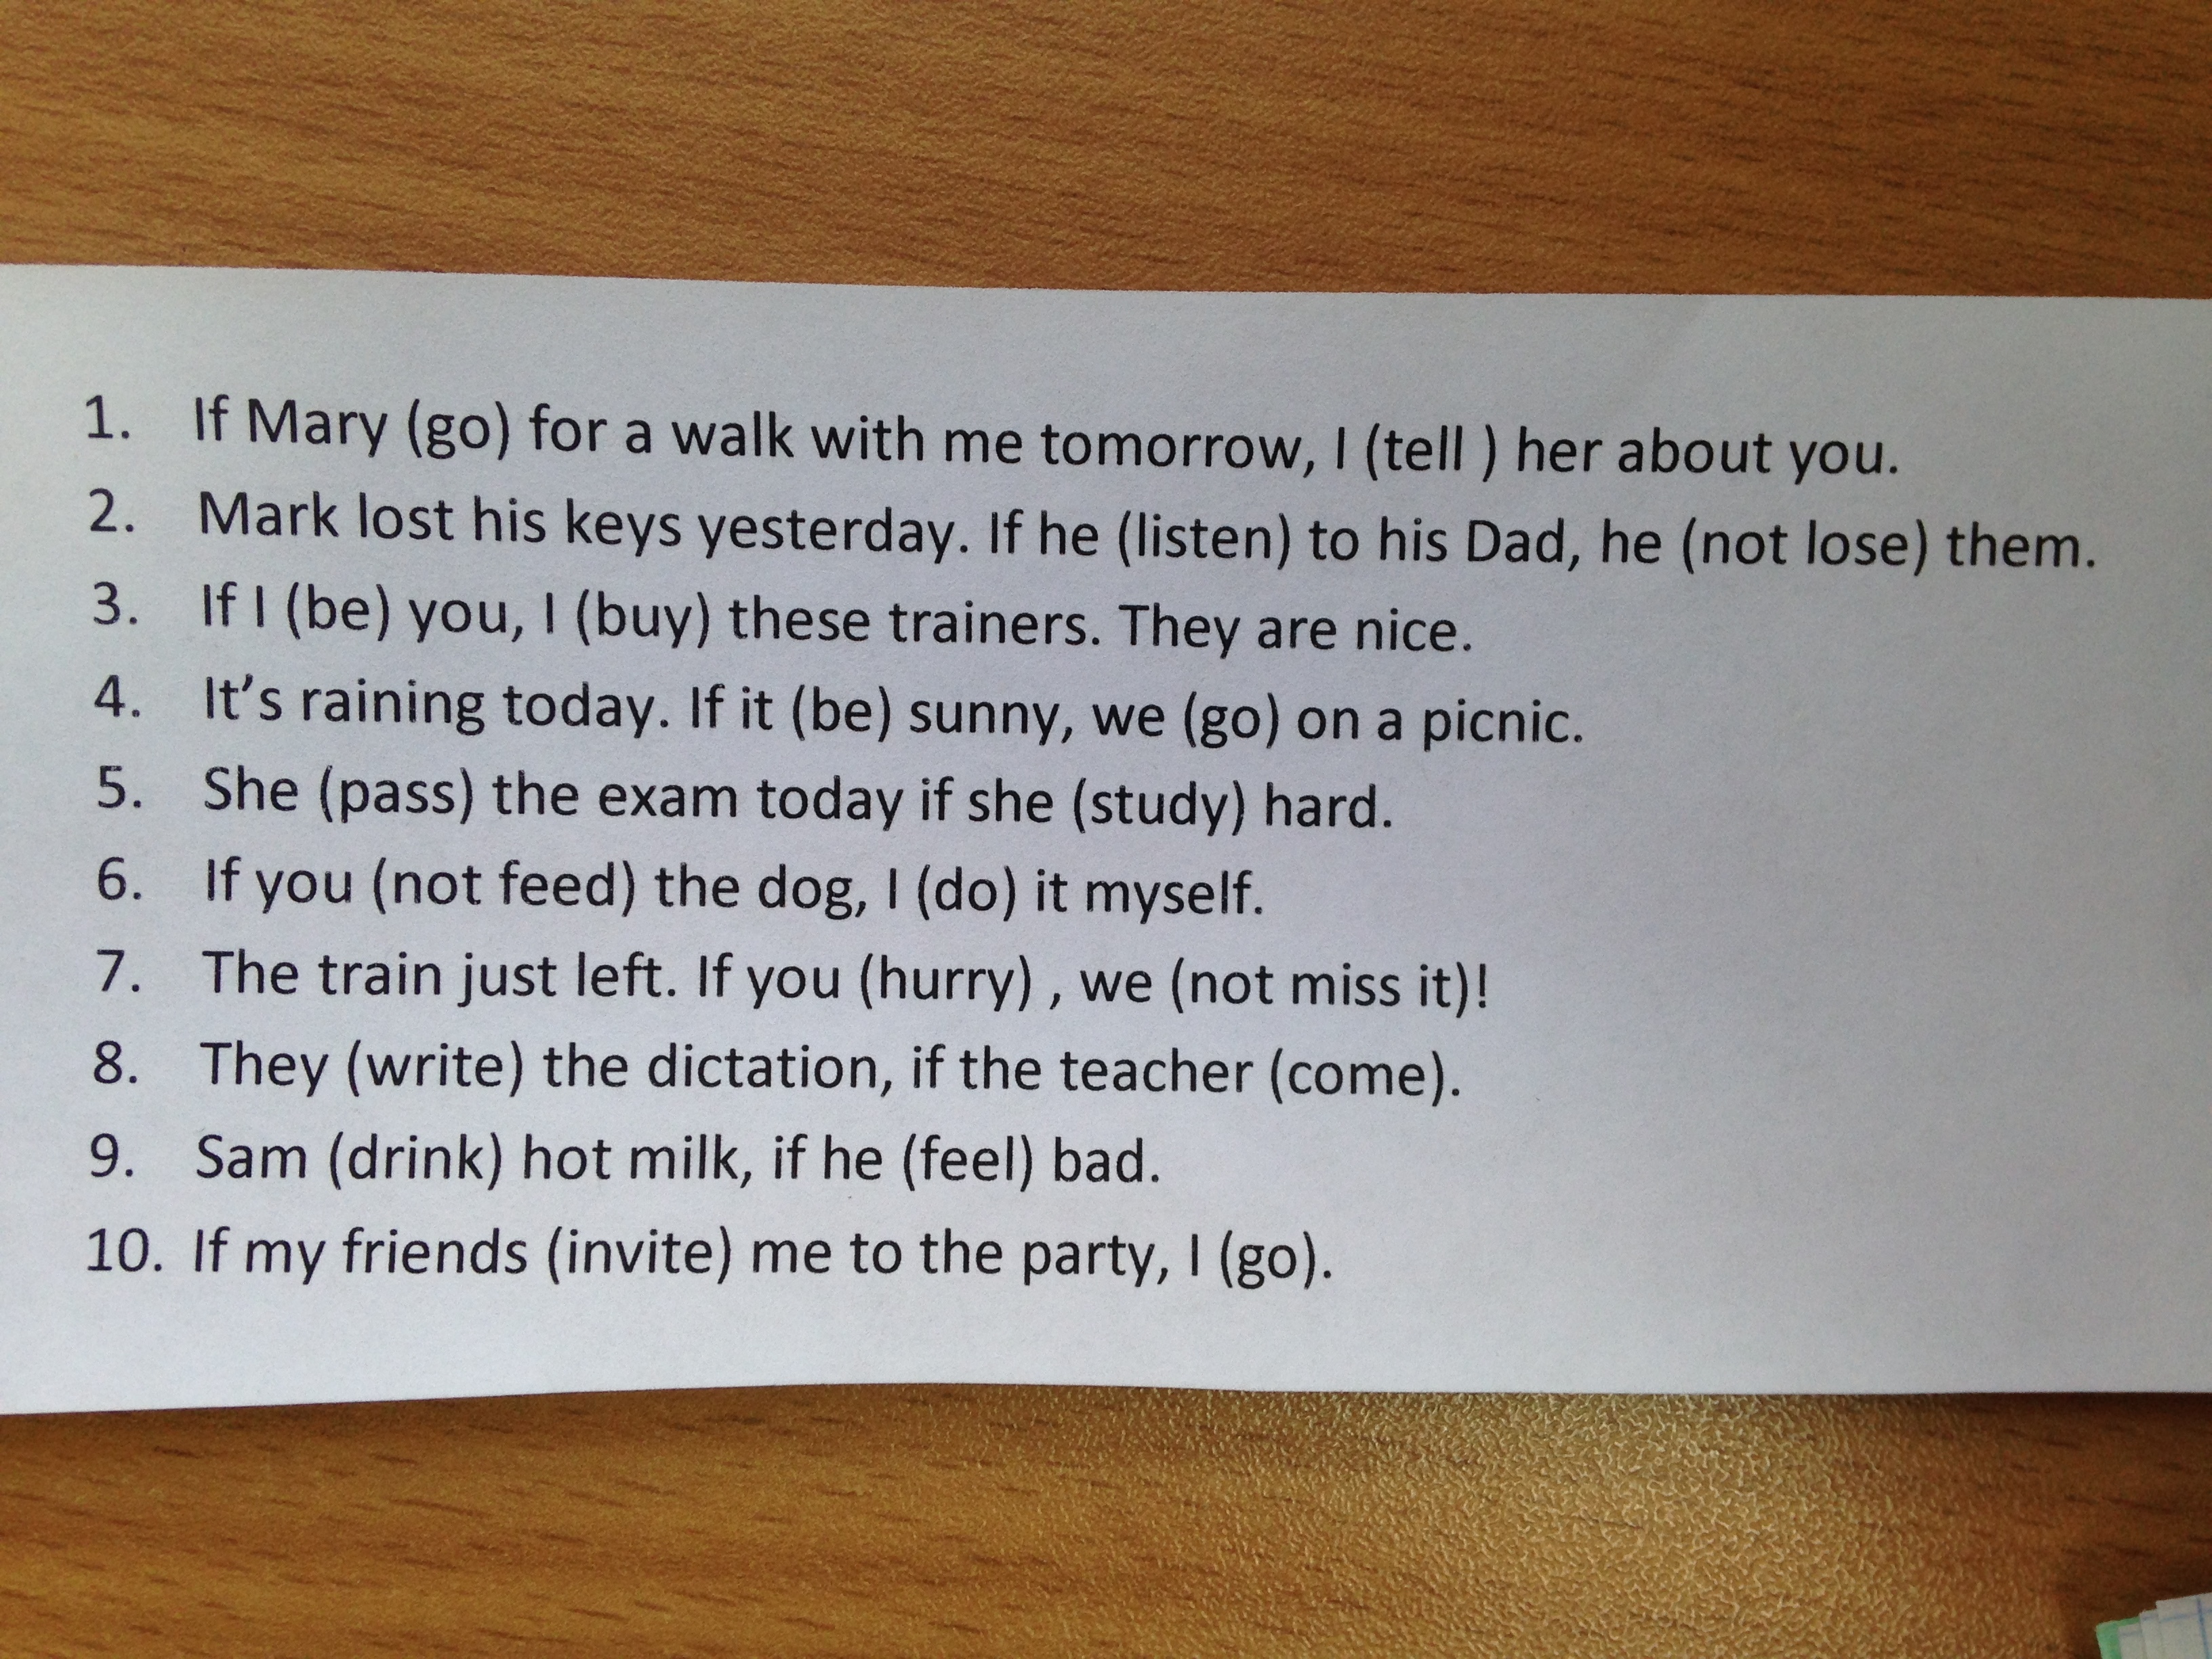 1. If Mary (go) for a walk with me tomorrow, I (tell ) her about you.
2. Mark lost his keys yesterday. If he (listen) to his Dad, he (not lose) them.
3. If I (be) you, I (buy) these trainers. They are nice.
4. It’s raining today. If it (be) sunny, we (go) on a picnic.
5. She (pass) the exam today if she (study) hard.
6. If you (not feed) the dog, I (do) it myself.
7. The train just left. If you (hurry) , we (not miss it)!
8. They (write) the dictation, if the teacher (come).
9. Sam (drink) hot milk, if he (feel) bad.
10. If my friends (invite) me to the party, I (go).